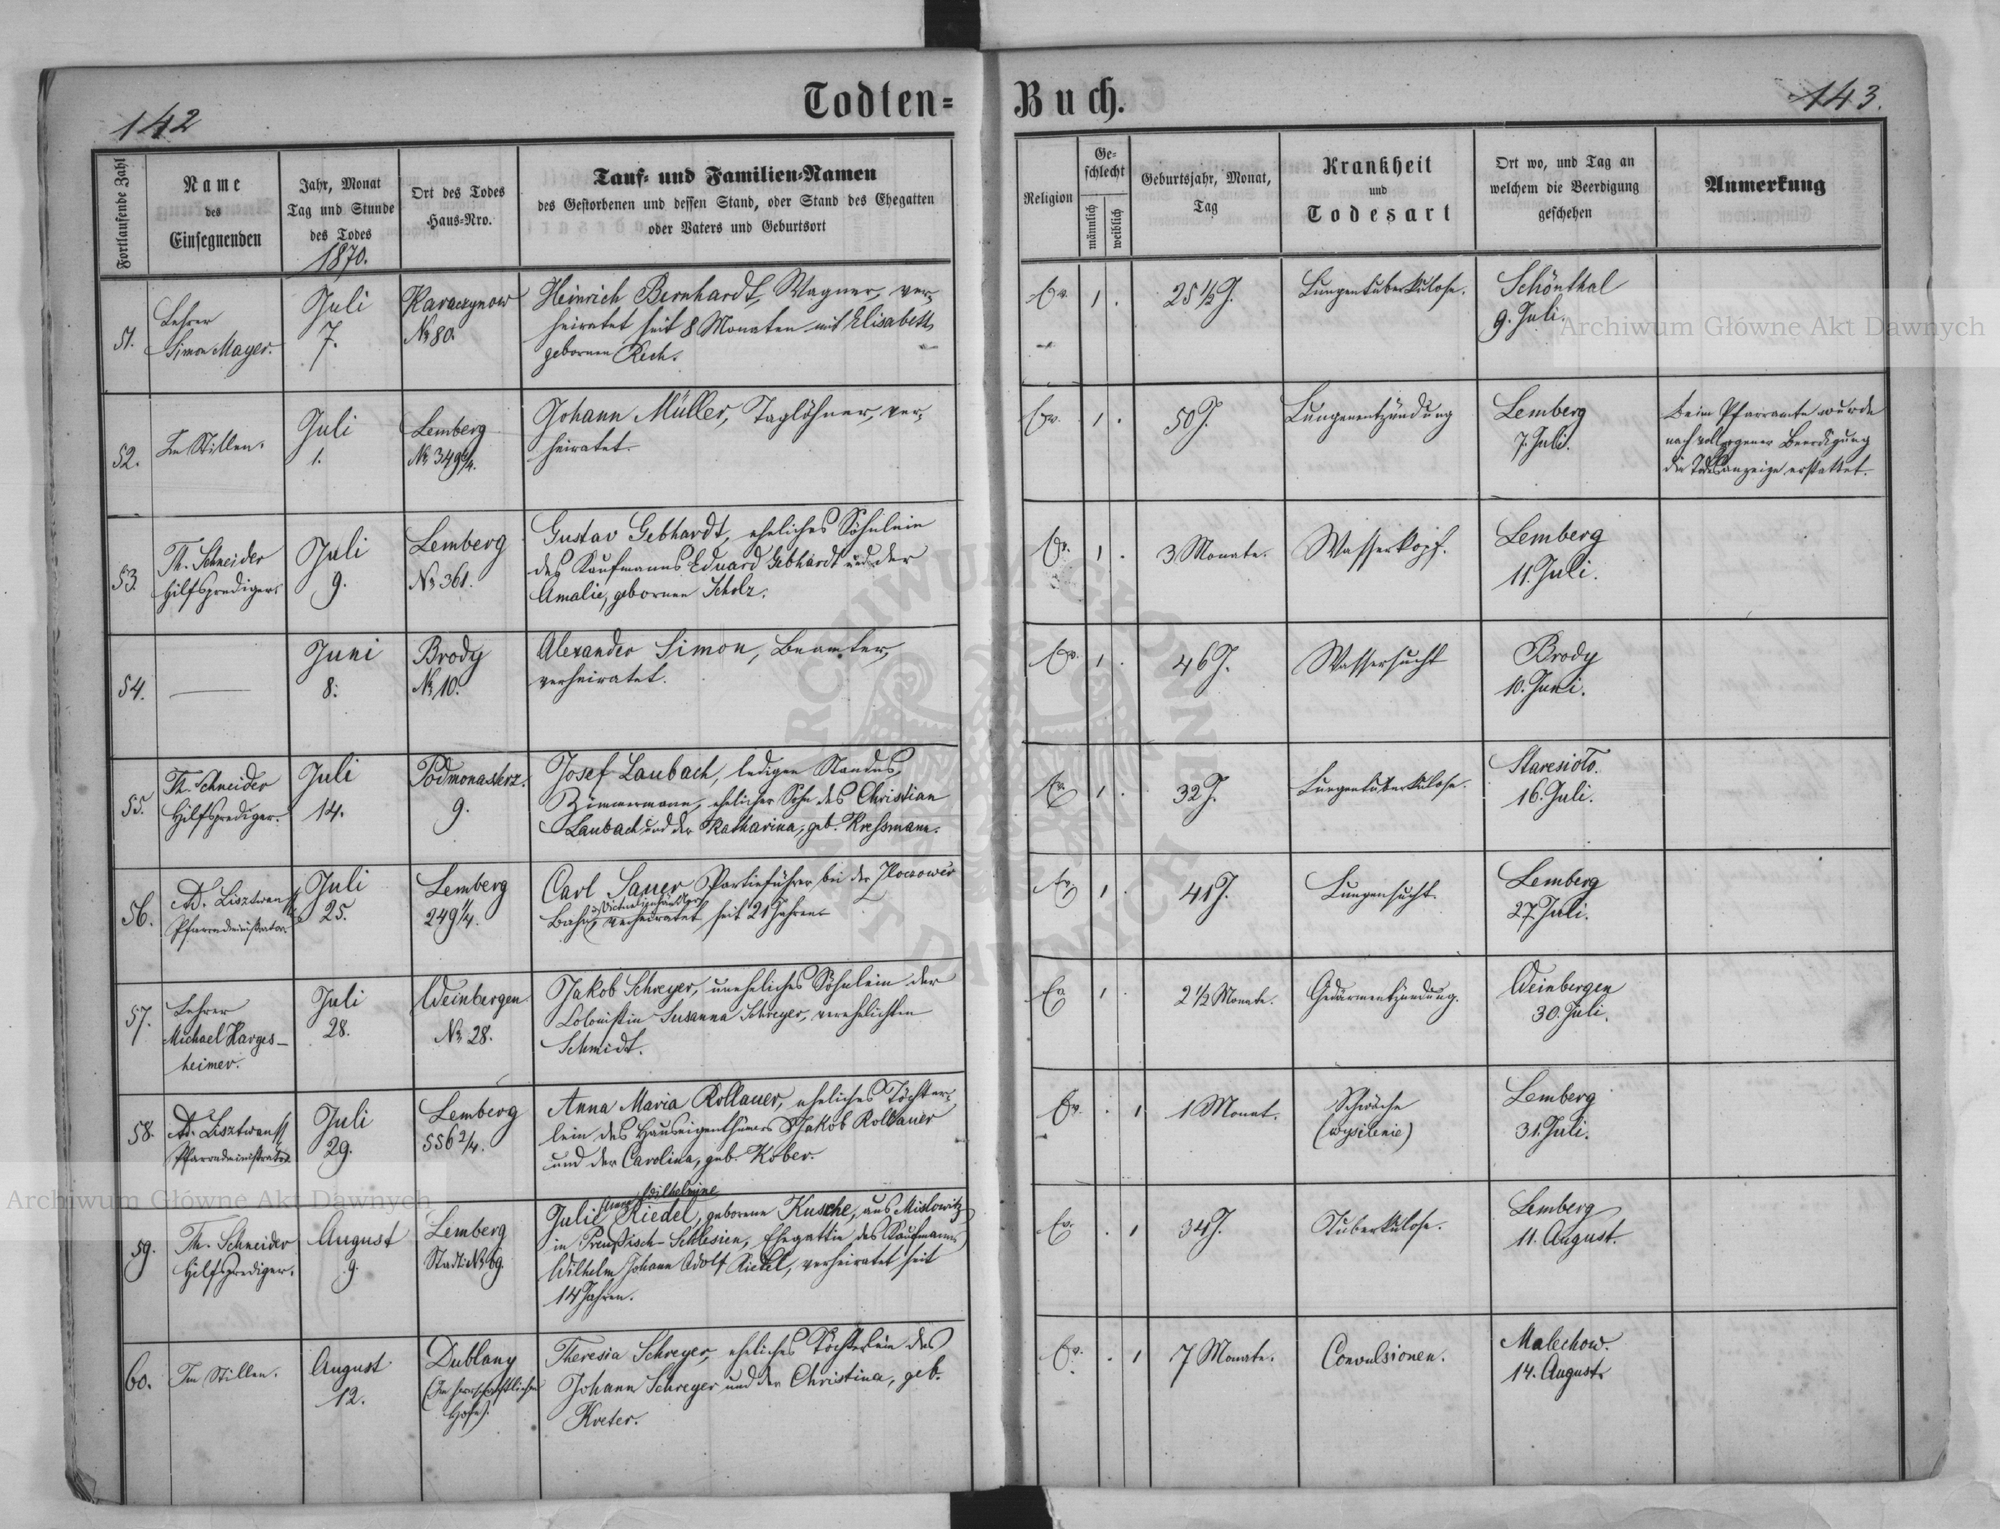 142
Todten=
Buch.
143.
Fortlaufende Zahl
Name
des
Einsegnenden
Jahr, Monat
Tag und Stunde
des Todes
1870.
Ort des Todes
Haus=Nro.
Tauf= und Familien=Namen
des Gestorbenen und dessen Stand, oder Stand des Ehegatten
oder Vaters und Geburtsort
Religion
Ge=
schlecht
männlich
weiblich
Geburtsjahr, Monat,
Tag
Krankheit
und
Todesart
Ort wo, und Tag an
welchem die Beerdigung
geschehen
Anmerkung
51.
Lehrer
Simon Mayer.
Juli
7.
Karaczynow
№ 80.
Heinrich Bernhardt, Wagner, ver=
heiratet seit 8 Monaten mit Elisabeth
gebornen Rech.
Ev.
1
25 1/2 J.
Lungentuberkulose.
Schönthal
9. Juli.
52.
Im Stillen.
Juli
1.
Lemberg
№ 349 2/4.
Johann Müller, Taglöhner, ver=
heiratet.
Ev.
1
50 J.
Lungenentzündung
Lemberg
7. Juli.
Beim Pfarramte wurde
nach vollzogener Beerdigung
die Todesanzeige erstattet.
53.
Th. Schneider
Hilfsprediger.
Juli
9.
Lemberg
№ 361.
Gustav Gebhardt, eheliches Söhnlein
des Kaufmanns Eduard Gebhardt und der
Amalie, gebornen Scholz.
Ev.
1
3 Monate.
Wasserkopf.
Lemberg
11. Juli.
54.
Juni
8.
Brody
№ 10.
Alexander Simon, Beamter,
verheiratet.
Ev.
1
46 J.
Wassersucht
Brody
10. Juni.
55.
Th. Schneider
Hilfsprediger.
Juli
14.
Podmonasterz.
9.
Josef Laubach, ledigen Standes,
Zimmermann, ehelicher Sohn des Christian
Laubach und der Katharina, geb. Kressmann.
Ev.
1
32 J.
Lungentuberkulose.
Staresioło.
16. Juli.
56.
Ad. Lisztwan
Pfarradministrator
Juli
25.
Lemberg
249 1/4.
Carl Sauer Partieführer bei der Złoczower
Bahn, verheiratet seit 21 Jahren
Ev.
1
41 J.
Lungensucht.
Lemberg
27. Juli.
57.
Lehrer
Michael Harges-
heimer.
Juli
28.
Weinbergen
№ 28.
Jakob Schreyer, uneheliches Söhnlein der
Colonistin Susanna Schreyer, verehelichten
Schmidt.
Ev.
1
2 1/2 Monate.
Gedärmentzündung.
Weinbergen
30. Juli.
58.
Ad. Lisztwan
Pfarradministrator
Juli
29.
Lemberg
556 2/4.
Anna Maria Rollauer, eheliches Töchter=
lein des Hauseigenthümers Jakob Rollauer
und der Carolina, geb. Kober.
Ev.
1
1 Monat.
Schwäche
Lemberg
31. Juli.
59.
Th. Schneider
Hilfsprediger.
August
9.
Lemberg
Stadt № 169.
Wilhelmine
Julie Riedel, geborene Kusche, aus Mislowitz
in Preußisch-Schlesien, Ehegattin des Kaufmanns
Wilhelm Johann Adolf Riedel, verheiratet seit
14 Jahren.
Ev.
1
34 J.
Tuberkulose.
Lemberg
11. August.
60.
Im Stillen.
August
12.
Dublany
(Im herrschaftlichen
Hofe).
Theresia Schreyer, eheliches Töchterlein des
Johann Schreyer und der Christina, geb.
Kreter.
Ev.
1
7 Monate.
Convulsionen.
Malechow.
14. August.
Archiwum Główne Akt Dawnych
Archiwum Główne Akt Dawnych
ARCHIWUM GŁÓWNE AKT DAWNYCH